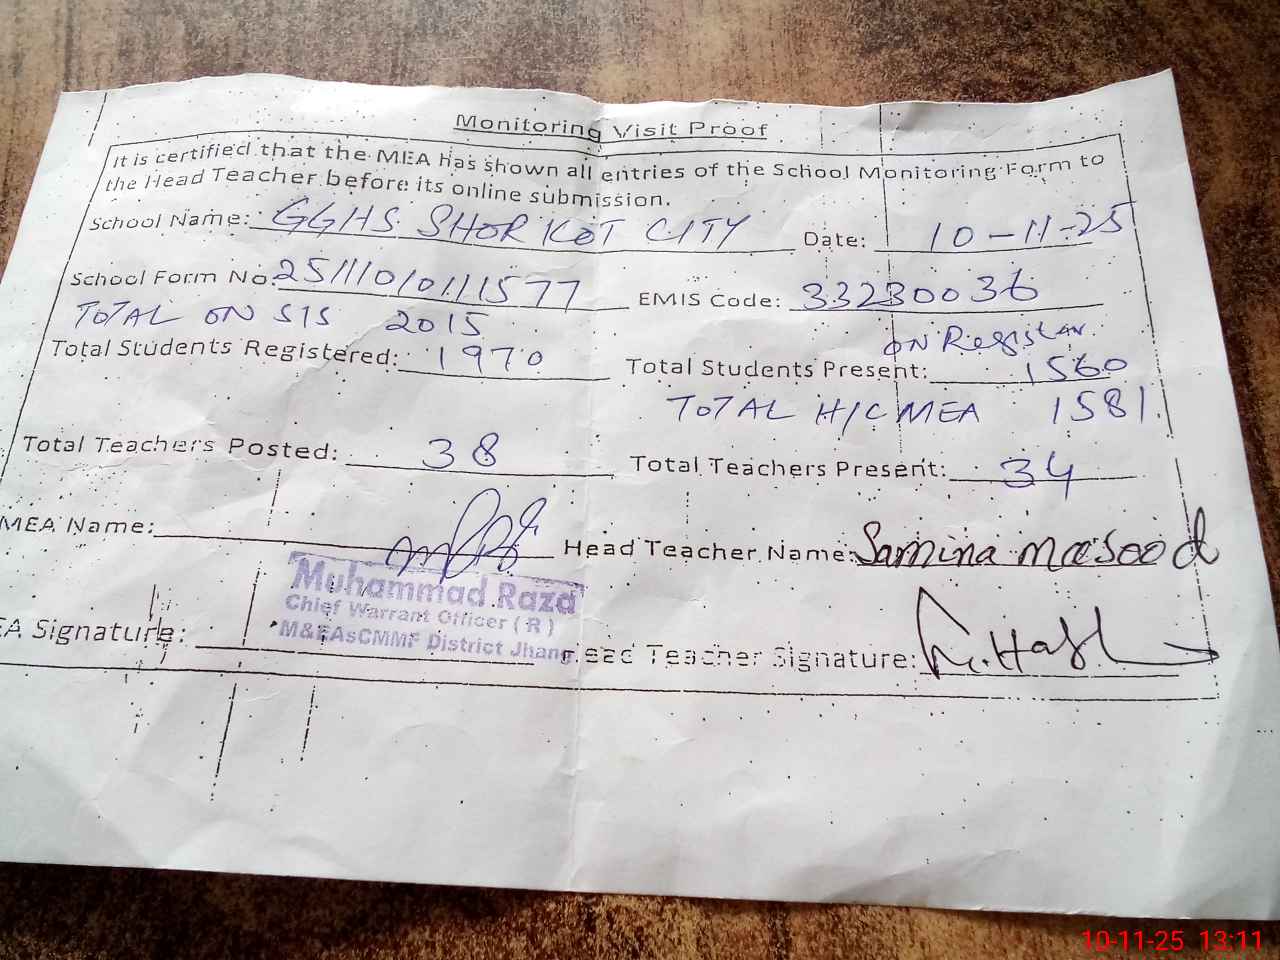 Monitoring Visit Proof
It is certified that the MEA has shown all entries of the School Monitoring Form to
the Head Teacher before its online submission.
School Name: GGHS SHORKOT CITY Date: 10-11-25
School Form No: 25/110/01/1577 EMIS Code: 33230036
TOTAL ON SIS 2015 ON Register
Total Students Registered: 1970 Total Students Present: 1560
TOTAL H/C MEA 1581
Total Teachers Posted: 38 Total Teachers Present: 34
MEA Name: Head Teacher Name: Samina Masood
Muhammad Raza
Chief Warrant Officer (R)
M&EAsCMMF District Jhang
EA Signature: Head Teacher Signature:
10-11-25 13:11